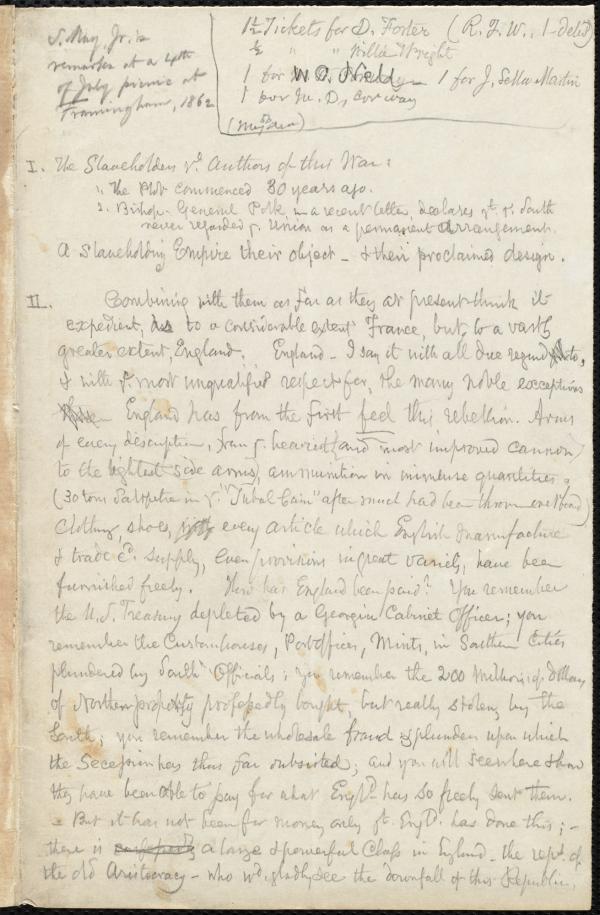 S. May, Jr.'s
remarks at a 4th
of July picnic at
Framingham, 1862
1½ Tickets for D. Foster (R. F. W., 1 - deld)
½ " " Willa Wright
1 for W. O. 1 for J. Sella Martin
1 for M. D. Conway
I. The Slaveholders ye Authors of this War:
1. The Plot commenced 30 years ago.
2. Bishop-General Polk, in a recent letter, declares yt ye South
never regarded ye Union as a permanent Arrangement.
A Slaveholding Empire their object - & their proclaimed design.
II. Combining with them as far as they at present think it
expedient, is to a considerable extent France, but, to a vastly
greater extent, England. England - I say it with all due regard to,
& with ye most unqualified respect for, the many noble exceptions
England has from the first fed this rebellion. Arms
of every description, from ye heaviest (and most improved cannon)
to the lightest side arms, ammunition in immense quantities,
(30 tons Saltpetre in ye "Tubal Cain" after much had been thrown overboard)
Clothing, shoes, every article which English manufacture
& trade cd. supply, even provisions in great variety, have been
furnished freely. How has England been paid? You remember
the U.S. Treasury depleted by a Georgian Cabinet Officer; you
remember the Customhouses, Post offices, Mints, in Southern Cities
plundered by South Officials; you remember the 200 millions of dollars
of Northern property professedly bought, but really stolen, by the
South; you remember the wholesale fraud & plunder upon which
the Secession has thus far subsisted; and you will see where & how
they have been able to pay for what Engld. has so freely sent them.
- But it has not been for money only yt. Engld. has done this; -
there is a large & powerful Class in England - the rept. of
the old Aristocracy - who wd. gladly see the downfall of this Republic.